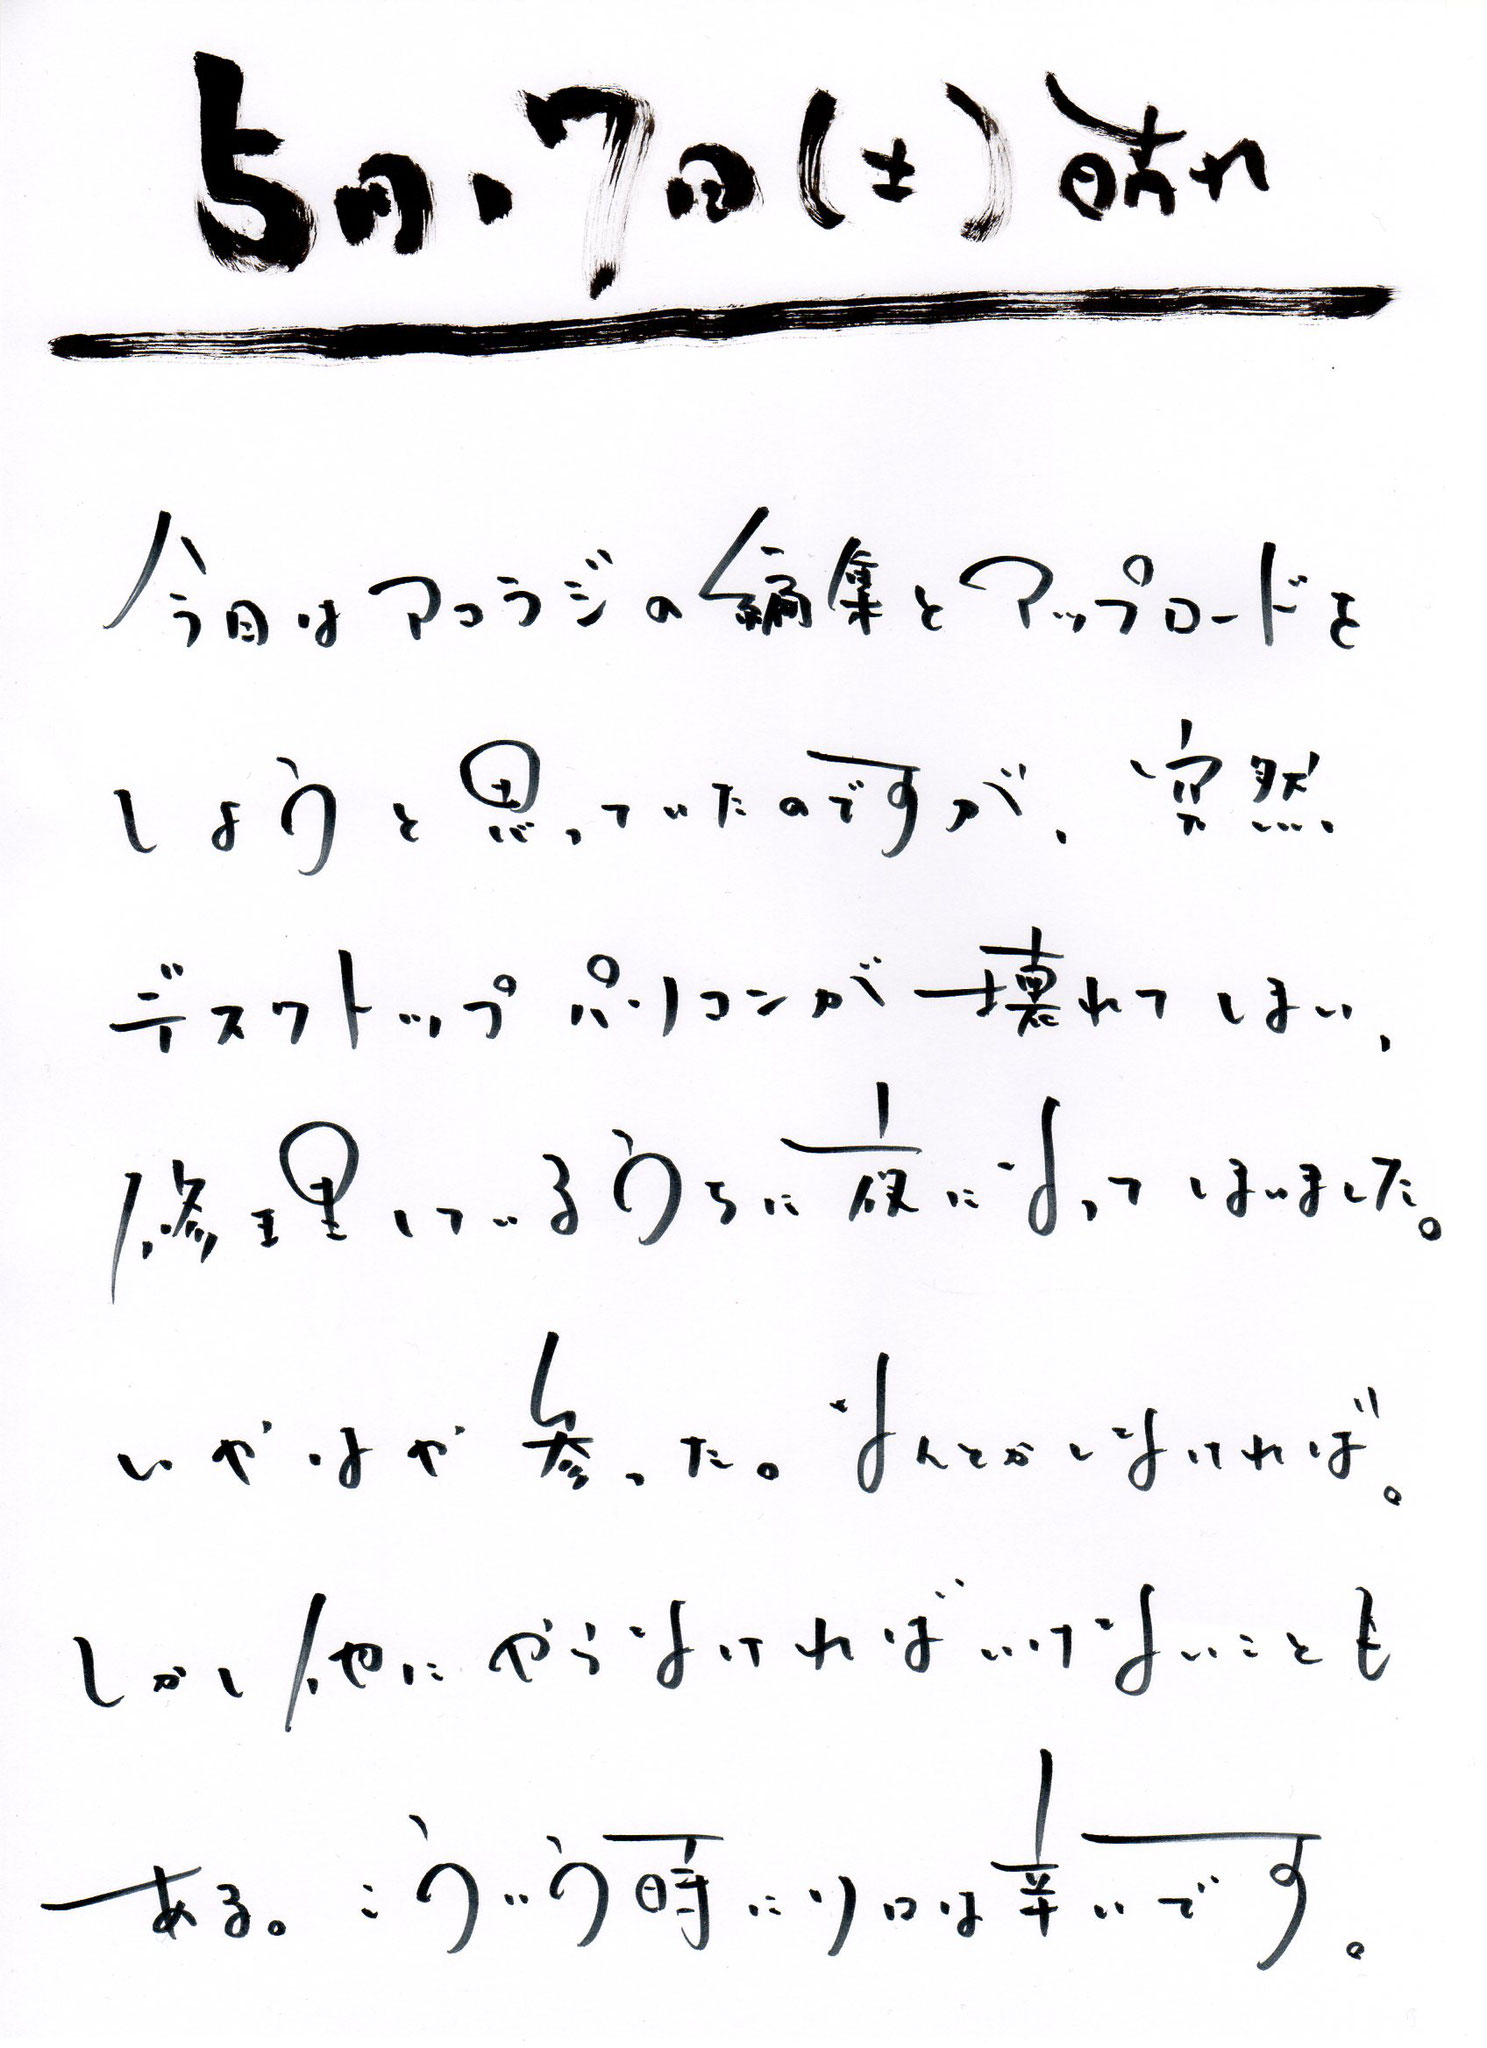 5月、7日(土)晴れ
今日はアコラジの編集とアップロードを
しようと思っていたのですが、突然
デスクトップパソコンが壊れてしまい、
修理しているうちに夜になってしまいました。
いやはや参った。なんとかしなければ。
しかし他にやらなければいけないことも
ある。こういう時にソロは辛いです。